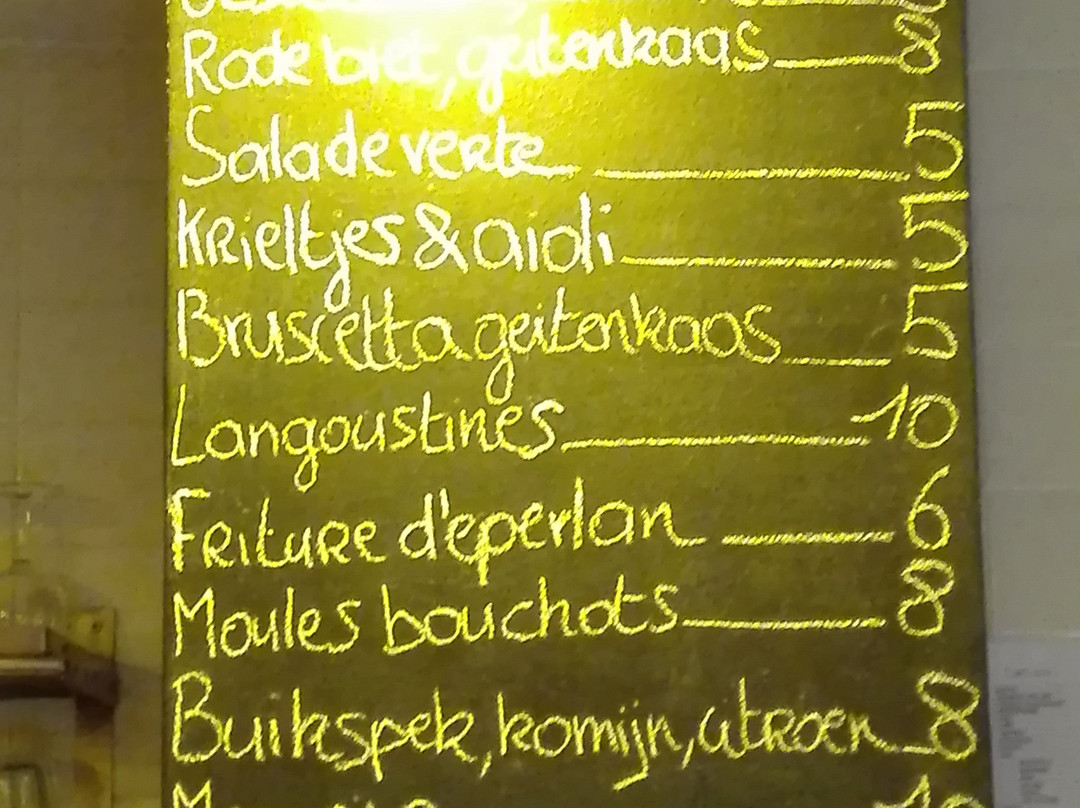 Rode biet, geitenkaas 8
Salade verte 5
Krieltjes & aioli 5
Bruscetta geitenkaas 5
Langoustines 10
Friture d'eperlan 6
Moules bouchots 8
Buikspek, komijn, citroen 8
10